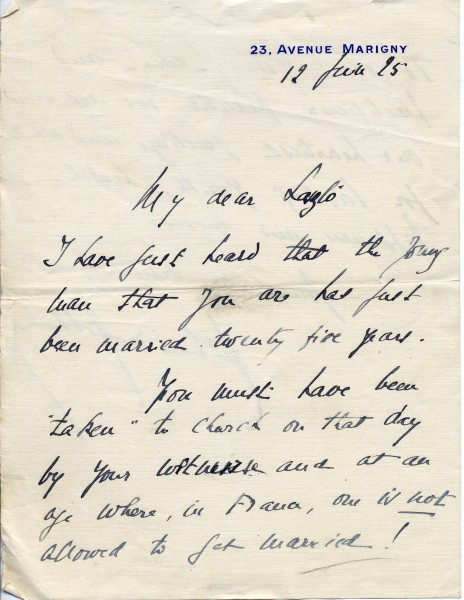 23, AVENUE MARIGNY
12 Juin 25
My dear Laszlò
I have just heard that the young
man that you are has just
been married twenty five years.
You must have been
"taken" to church on that day
by your and at an
age where, in France, one is not
allowed to get married!